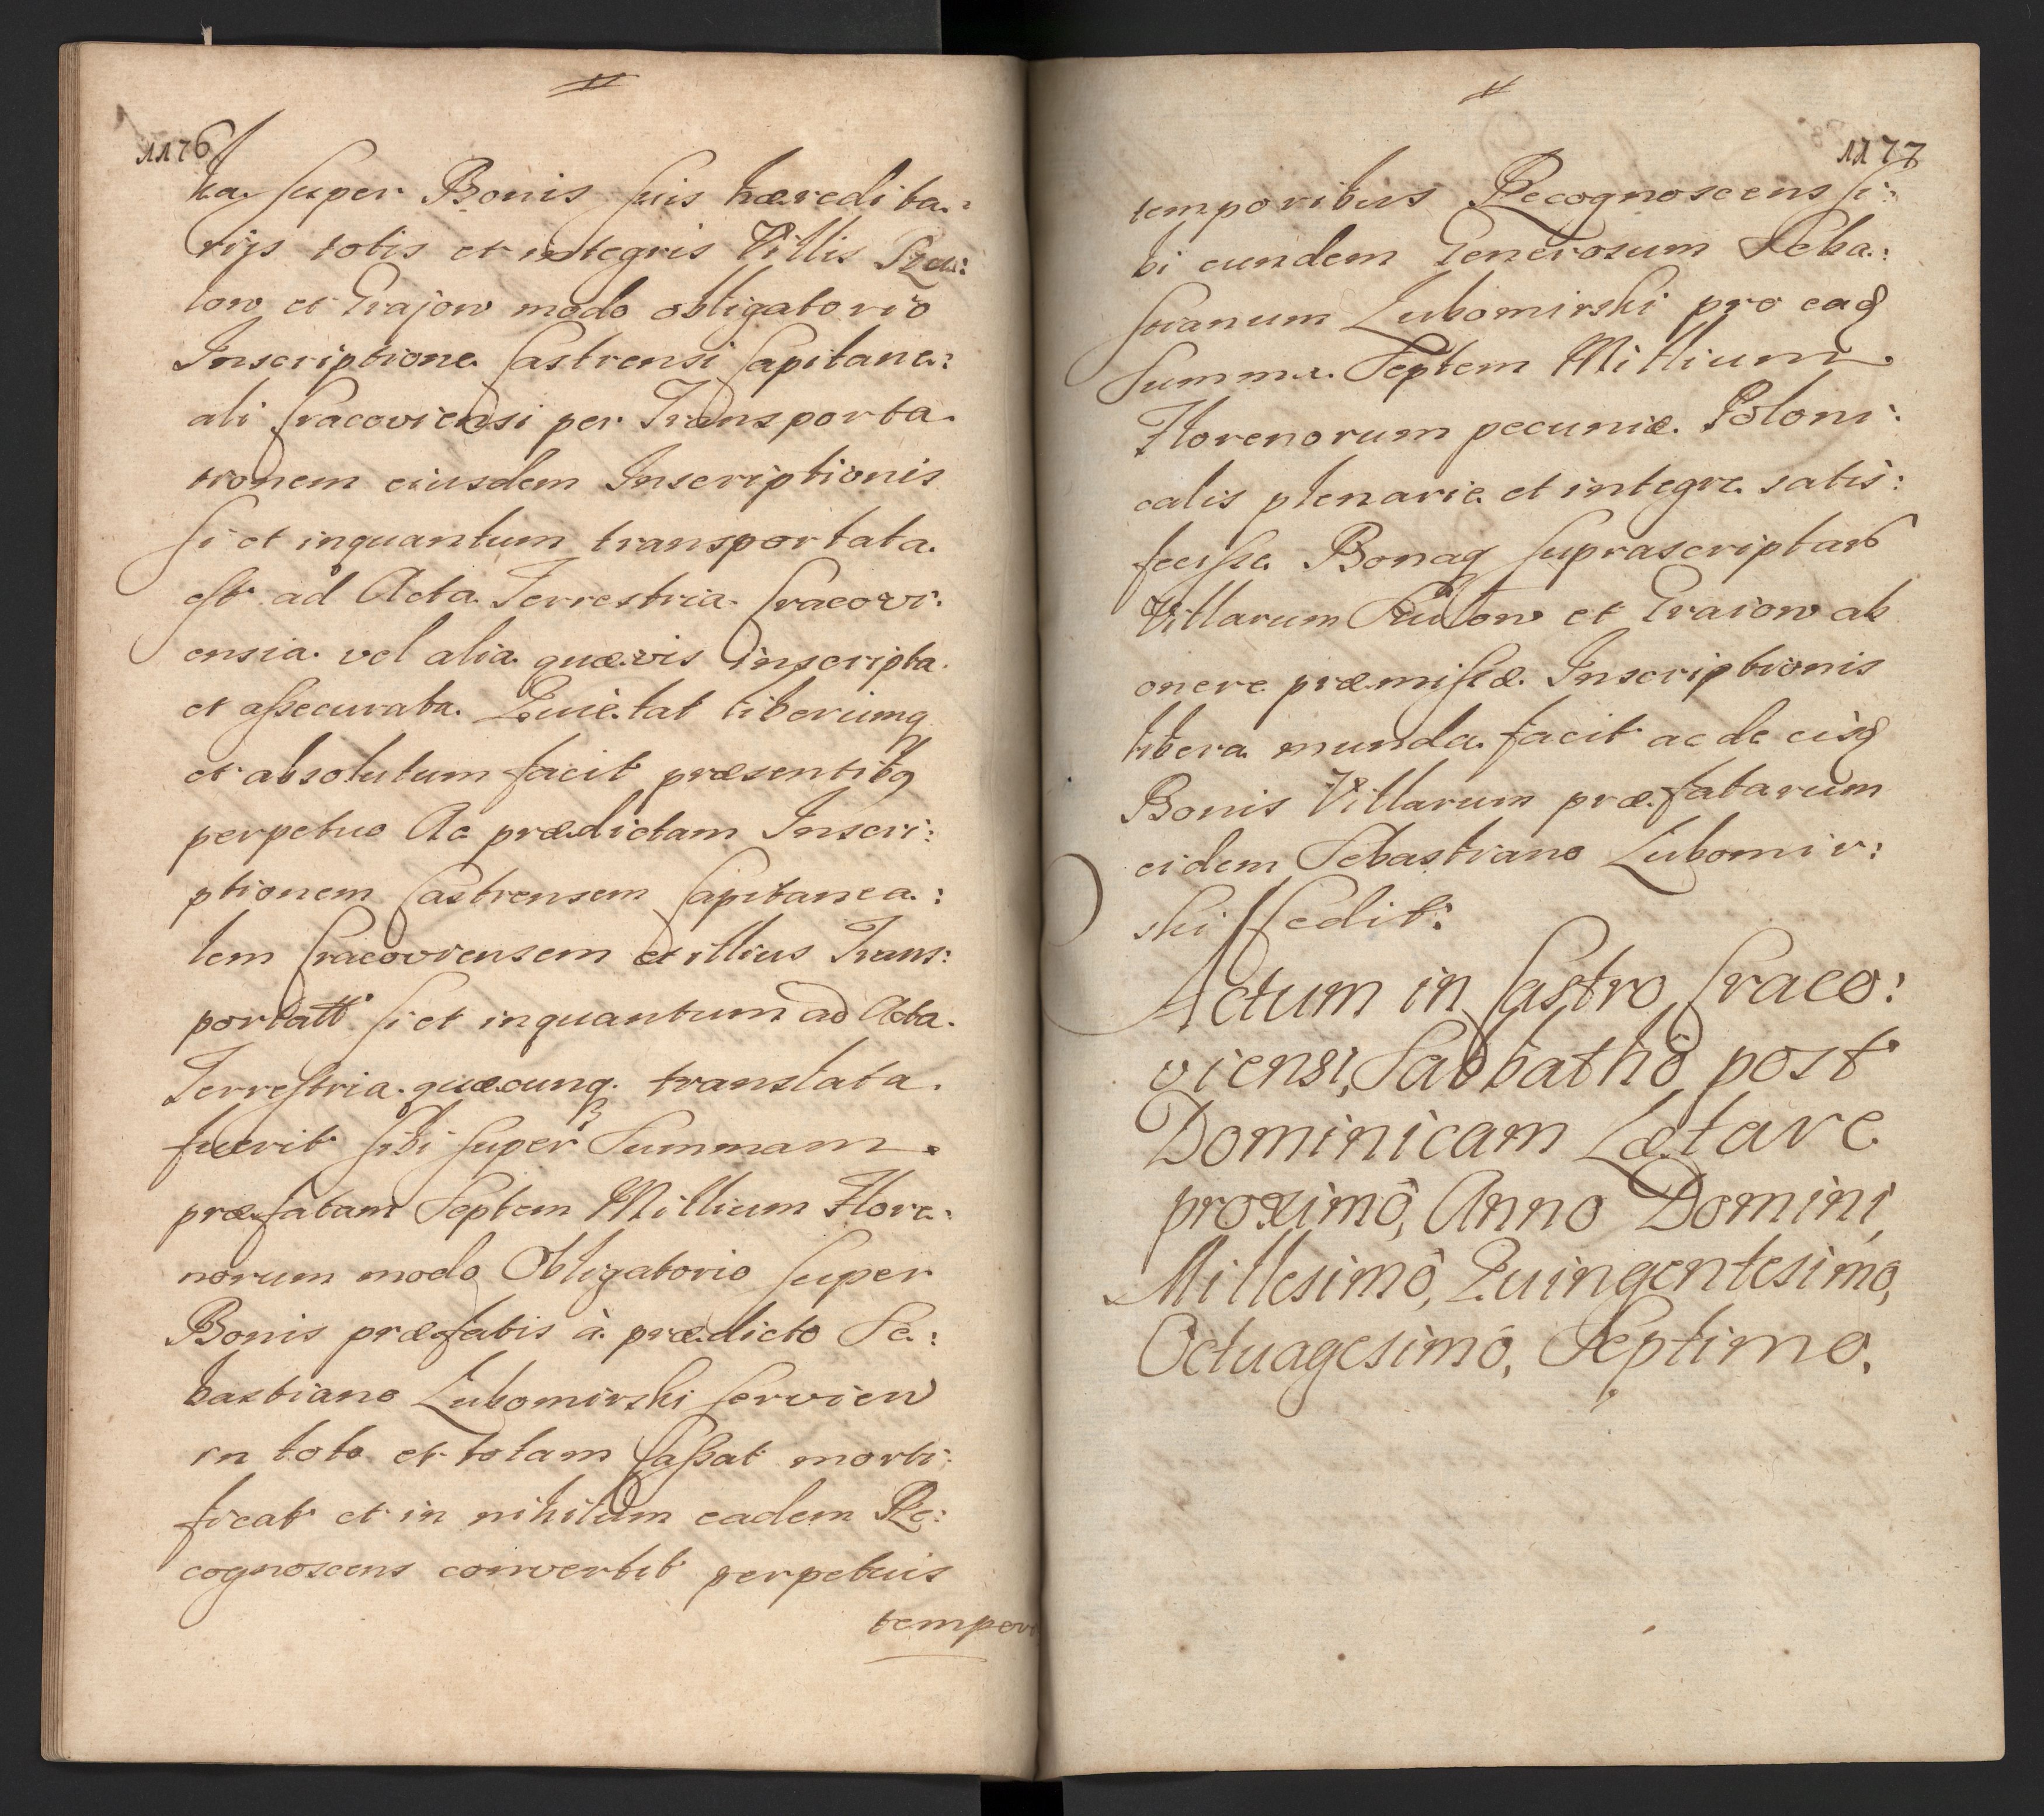 1176
ta super Bonis suis hæredita:
rijs totis et integris Villis Rzu:
tow et Grajow modo obligatorio
Inscriptione Castrensi Capitane:
ali Cracoviensi per Transporta
tionem eiusdem Inscriptionis
si et inquantum transportata
est ad Acta Terrestria Cracovi:
ensia vel alia quævis inscripta
et assecurata Quietat liberumq
et absolutum facit præsentibq
perpetuo Ac prædictam Inscri:
ptionem Castrensem Capitanea:
lem Cracoviensem et illius Trans:
portatt si et inquantum ad Acta
Terrestria quæcunq translata
fuerit sibi super Summam
præfatam Septem Millium Flore:
norum modo Obligatorio super
Bonis præfatis à prædicto Se:
bastiano Lubomirski servien
in toto et totam Cassat morti:
ficat et in nihilum eadem Re:
cognoscens convertit perpetuis
tempori
1177
temporibus Recognoscens si:
bi eundem Generosum Seba:
stianum Lubomirski pro eaq
Summa Septem Millium
Florenorum pecuniæ Poloni:
calis plenarie et integre satis:
fecisse Bonaq suprascriptarb
Villarum et Graiow ab
onere præmissæ Inscriptionis
libera munda facit ac de eisq
Bonis Villarum præfatarum
eidem Sebastiano Lubomir:
ski Cedit:
Actum in Castro Craco:
viensi, Sabbathô post
Dominicam Lætare
proximô, Anno Domini
Millesimô, Quingentesimô,
Octuagesimô, Septimo.